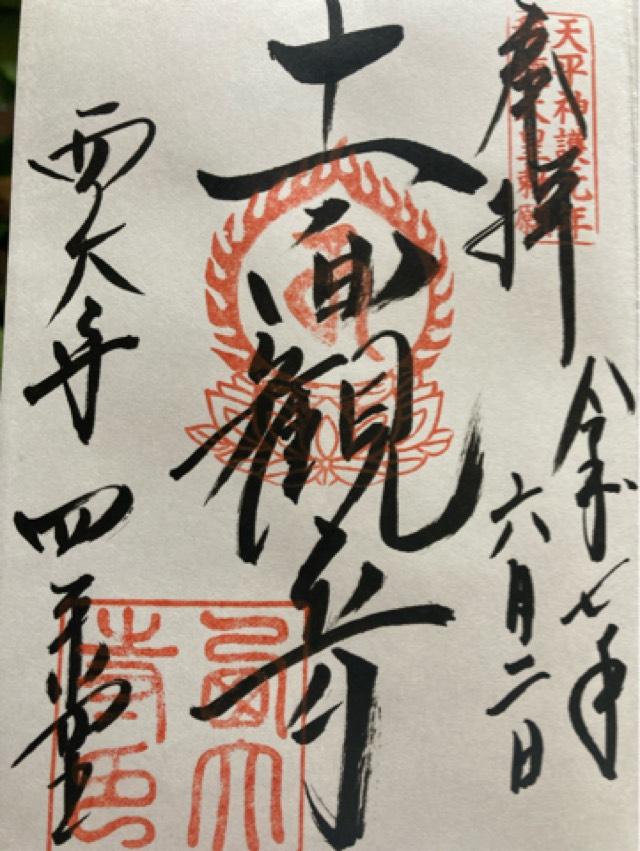 天平神護元年
天皇勅願
奉拝
令和七年
六月二日
十一面觀音
西大寺 四王堂
西大寺印